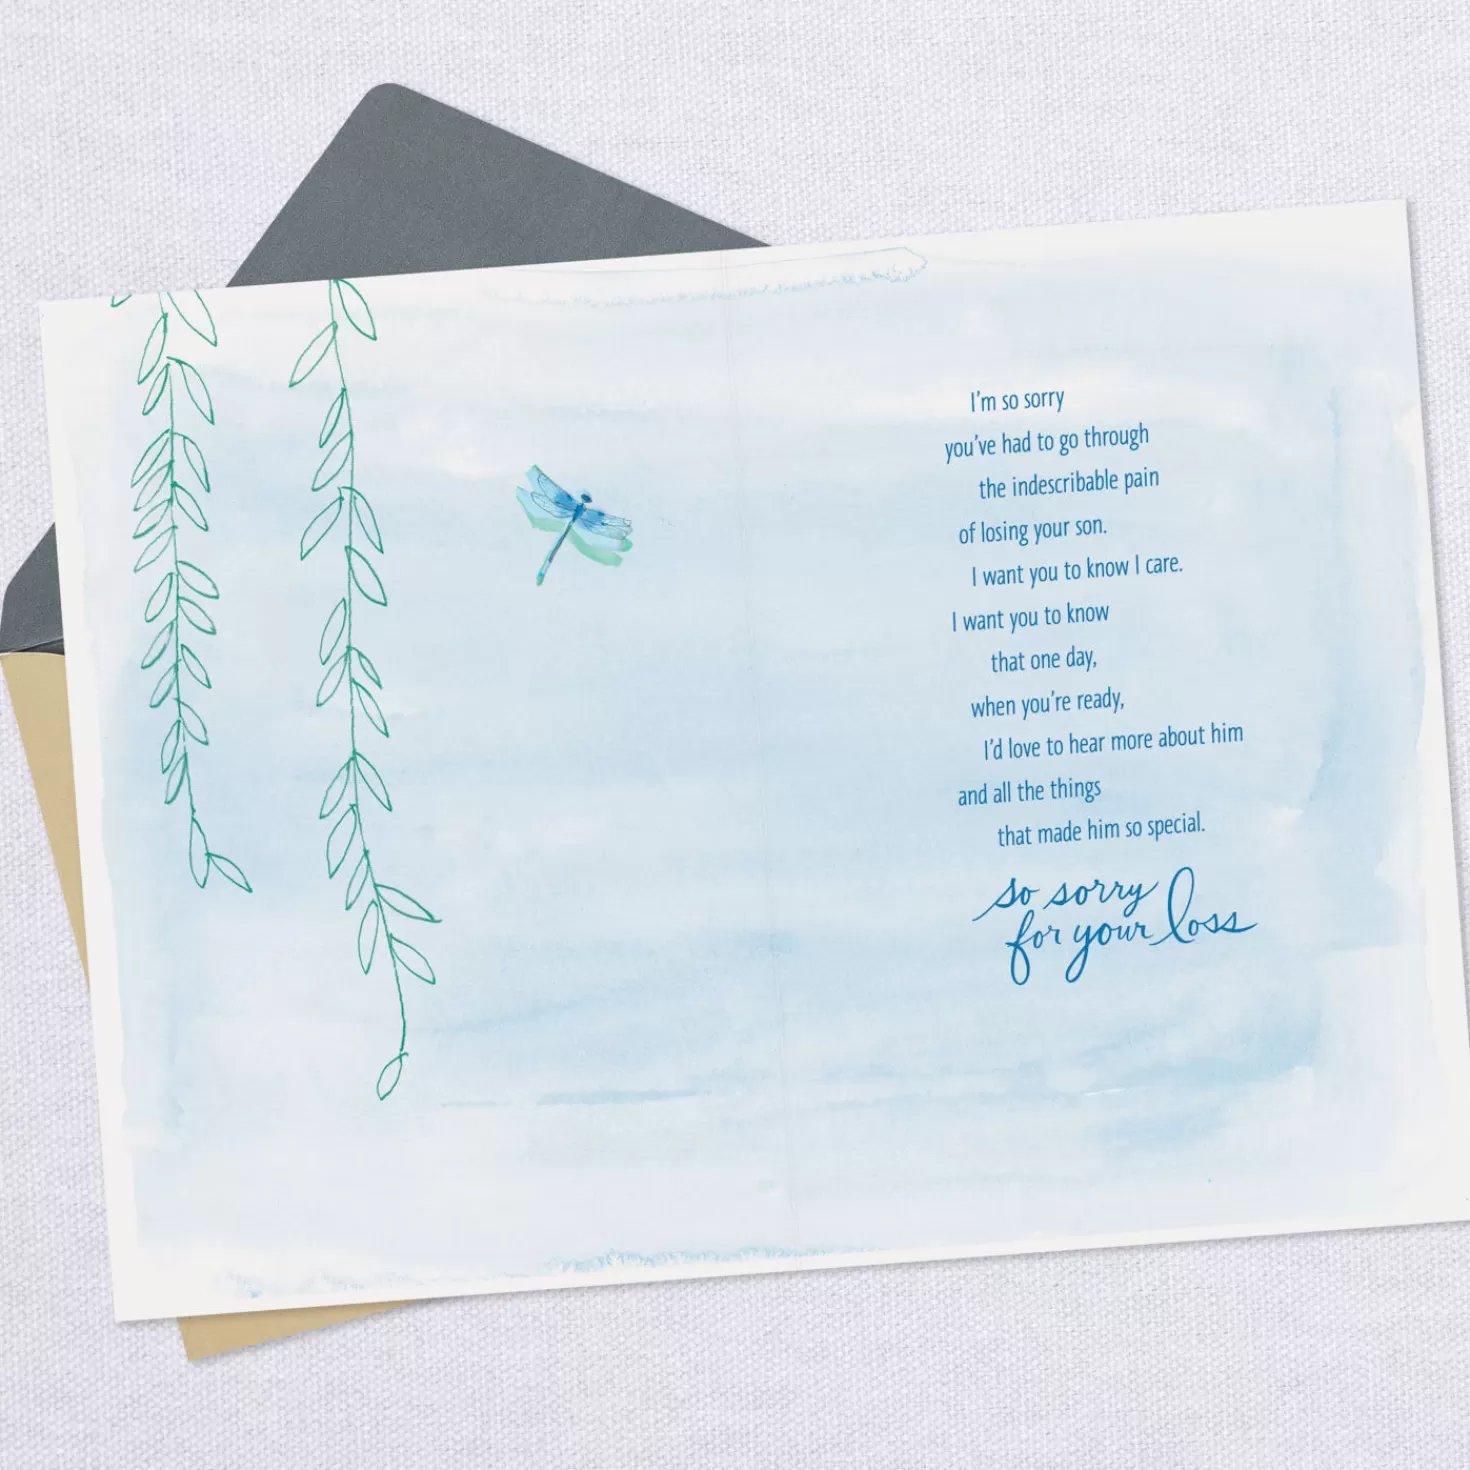 I'm so sorry
you've had to go through
the indescribable pain
of losing your son.
I want you to know I care.
I want you to know
that one day,
when you're ready,
I'd love to hear more about him
and all the things
that made him so special.
so sorry
for your loss